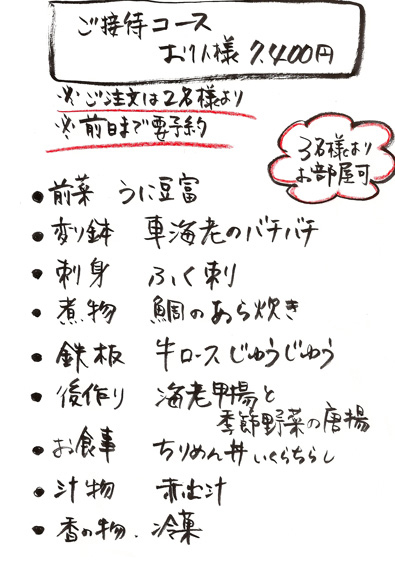 ご接待コース
お1人様 7.400円
※ご注文は2名様より
※前日まで要予約
3名様より
お部屋可
・前菜 うに豆富
・変り鉢 車海老のバチバチ
・刺身 ふく刺
・煮物 鯛のあら炊き
・鉄板 牛ロースじゅうじゅう
・後作り 海老甲揚と
季節野菜の唐揚
・お食事 ちりめん丼 いくらちらし
・汁物 赤出汁
・香の物. 冷菓